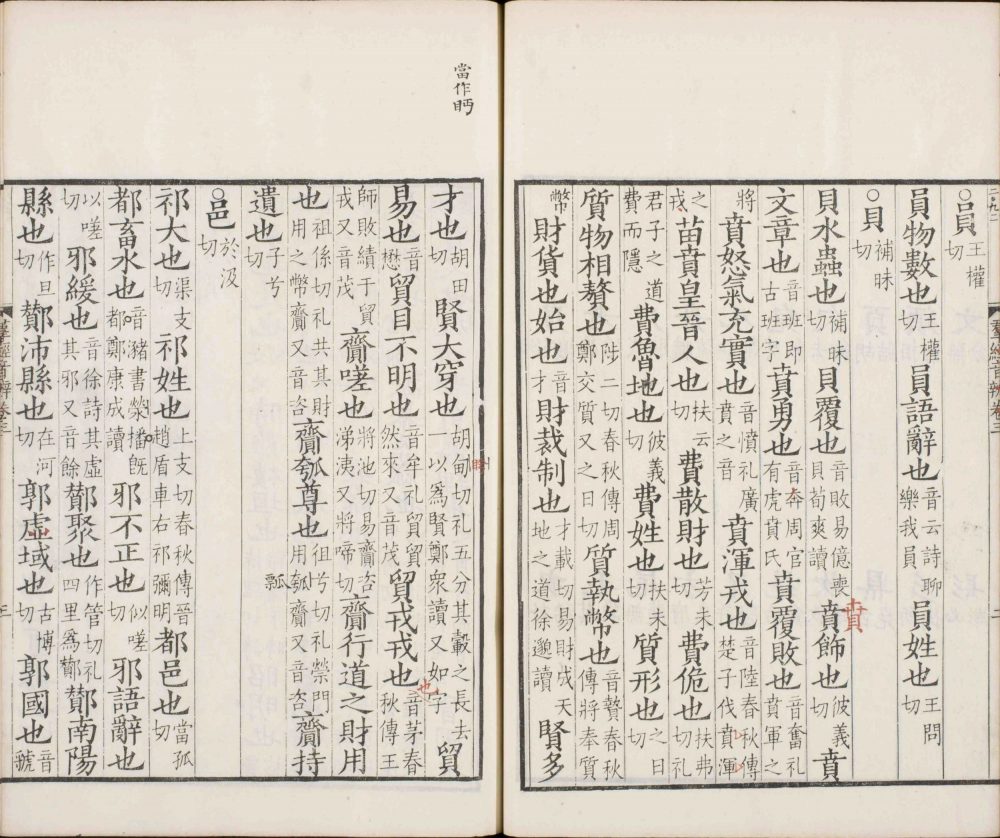 ○員王權切
員物數也王權切員語辭也音云詩聊樂我員員姓也王問切
○貝補昧切
貝水蟲也補昧切貝覆也音敗易億喪貝荀爽讀賁飾也彼義切賁
賁
文章也音班即古班字賁勇也音奔周官有虎賁氏賁覆敗也音奮礼賁軍之
將賁怒氣充實也音憤礼廣賁之音賁渾戎也音陸春秋傳楚子伐賁渾
之戎苗賁皇晉人也扶云切費散財也芳未切費佹也扶弗切礼
君子之道費而隱費魯地也彼義切費姓也扶未切質形也之日切
質物相贅也陟二切春秋傳周鄭交質又之日切質執幣也音贄春秋傳將奉質
幣財貨也始也音才財裁制也才載切易財成天地之道徐邈讀賢多
當作眄
才也胡田切賢大穿也胡甸切礼五分其轂之長去一以爲賢鄭衆讀又如字貿
易也音懋貿目不明也音牟礼貿貿然來又音茂貿戎戎也音茅春秋傳王
也
師敗績于貿戎又音茂齎嗟也將池切易齎咨涕洟又將啼切齎行道之財用
也祖係切礼共其財用之幣齎又音咨齎瓠尊也徂兮切礼禜門用瓢齎又音咨齎持
瓢
遺也子兮切
○邑於汲切
祁大也渠支切祁姓也上支切春秋傳晉趙盾車右祁彌明都邑也當孤切
都畜水也音瀦書滎播旣都鄭康成讀邪不正也似嗟切邪語辭也
以嗟切邪緩也音徐詩其虛其邪又音餘酇聚也作管切礼四里爲酇酇南陽
縣也作旦切酇沛縣也在河切郭虛域也古博切郭國也音虢